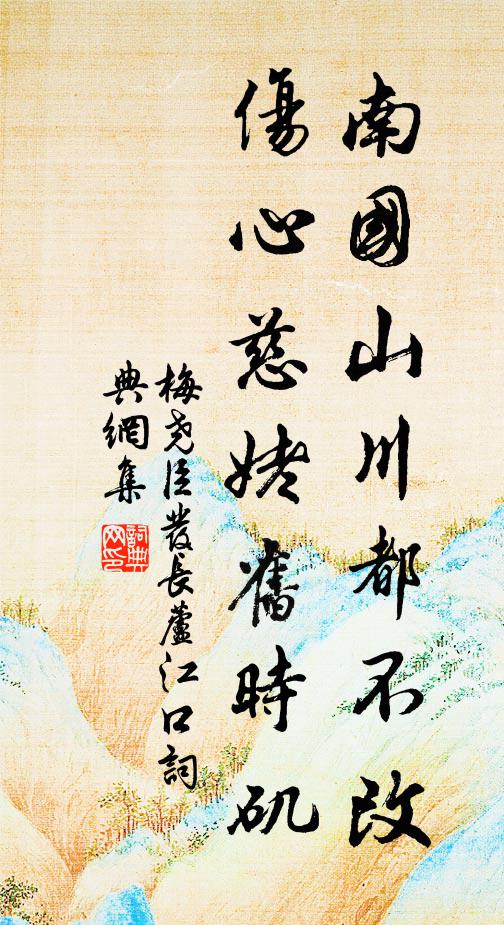 南國山川都不改
傷心慈姥舊時矶
梅尧臣發長蘆江口詞
典網集
詞典
网印